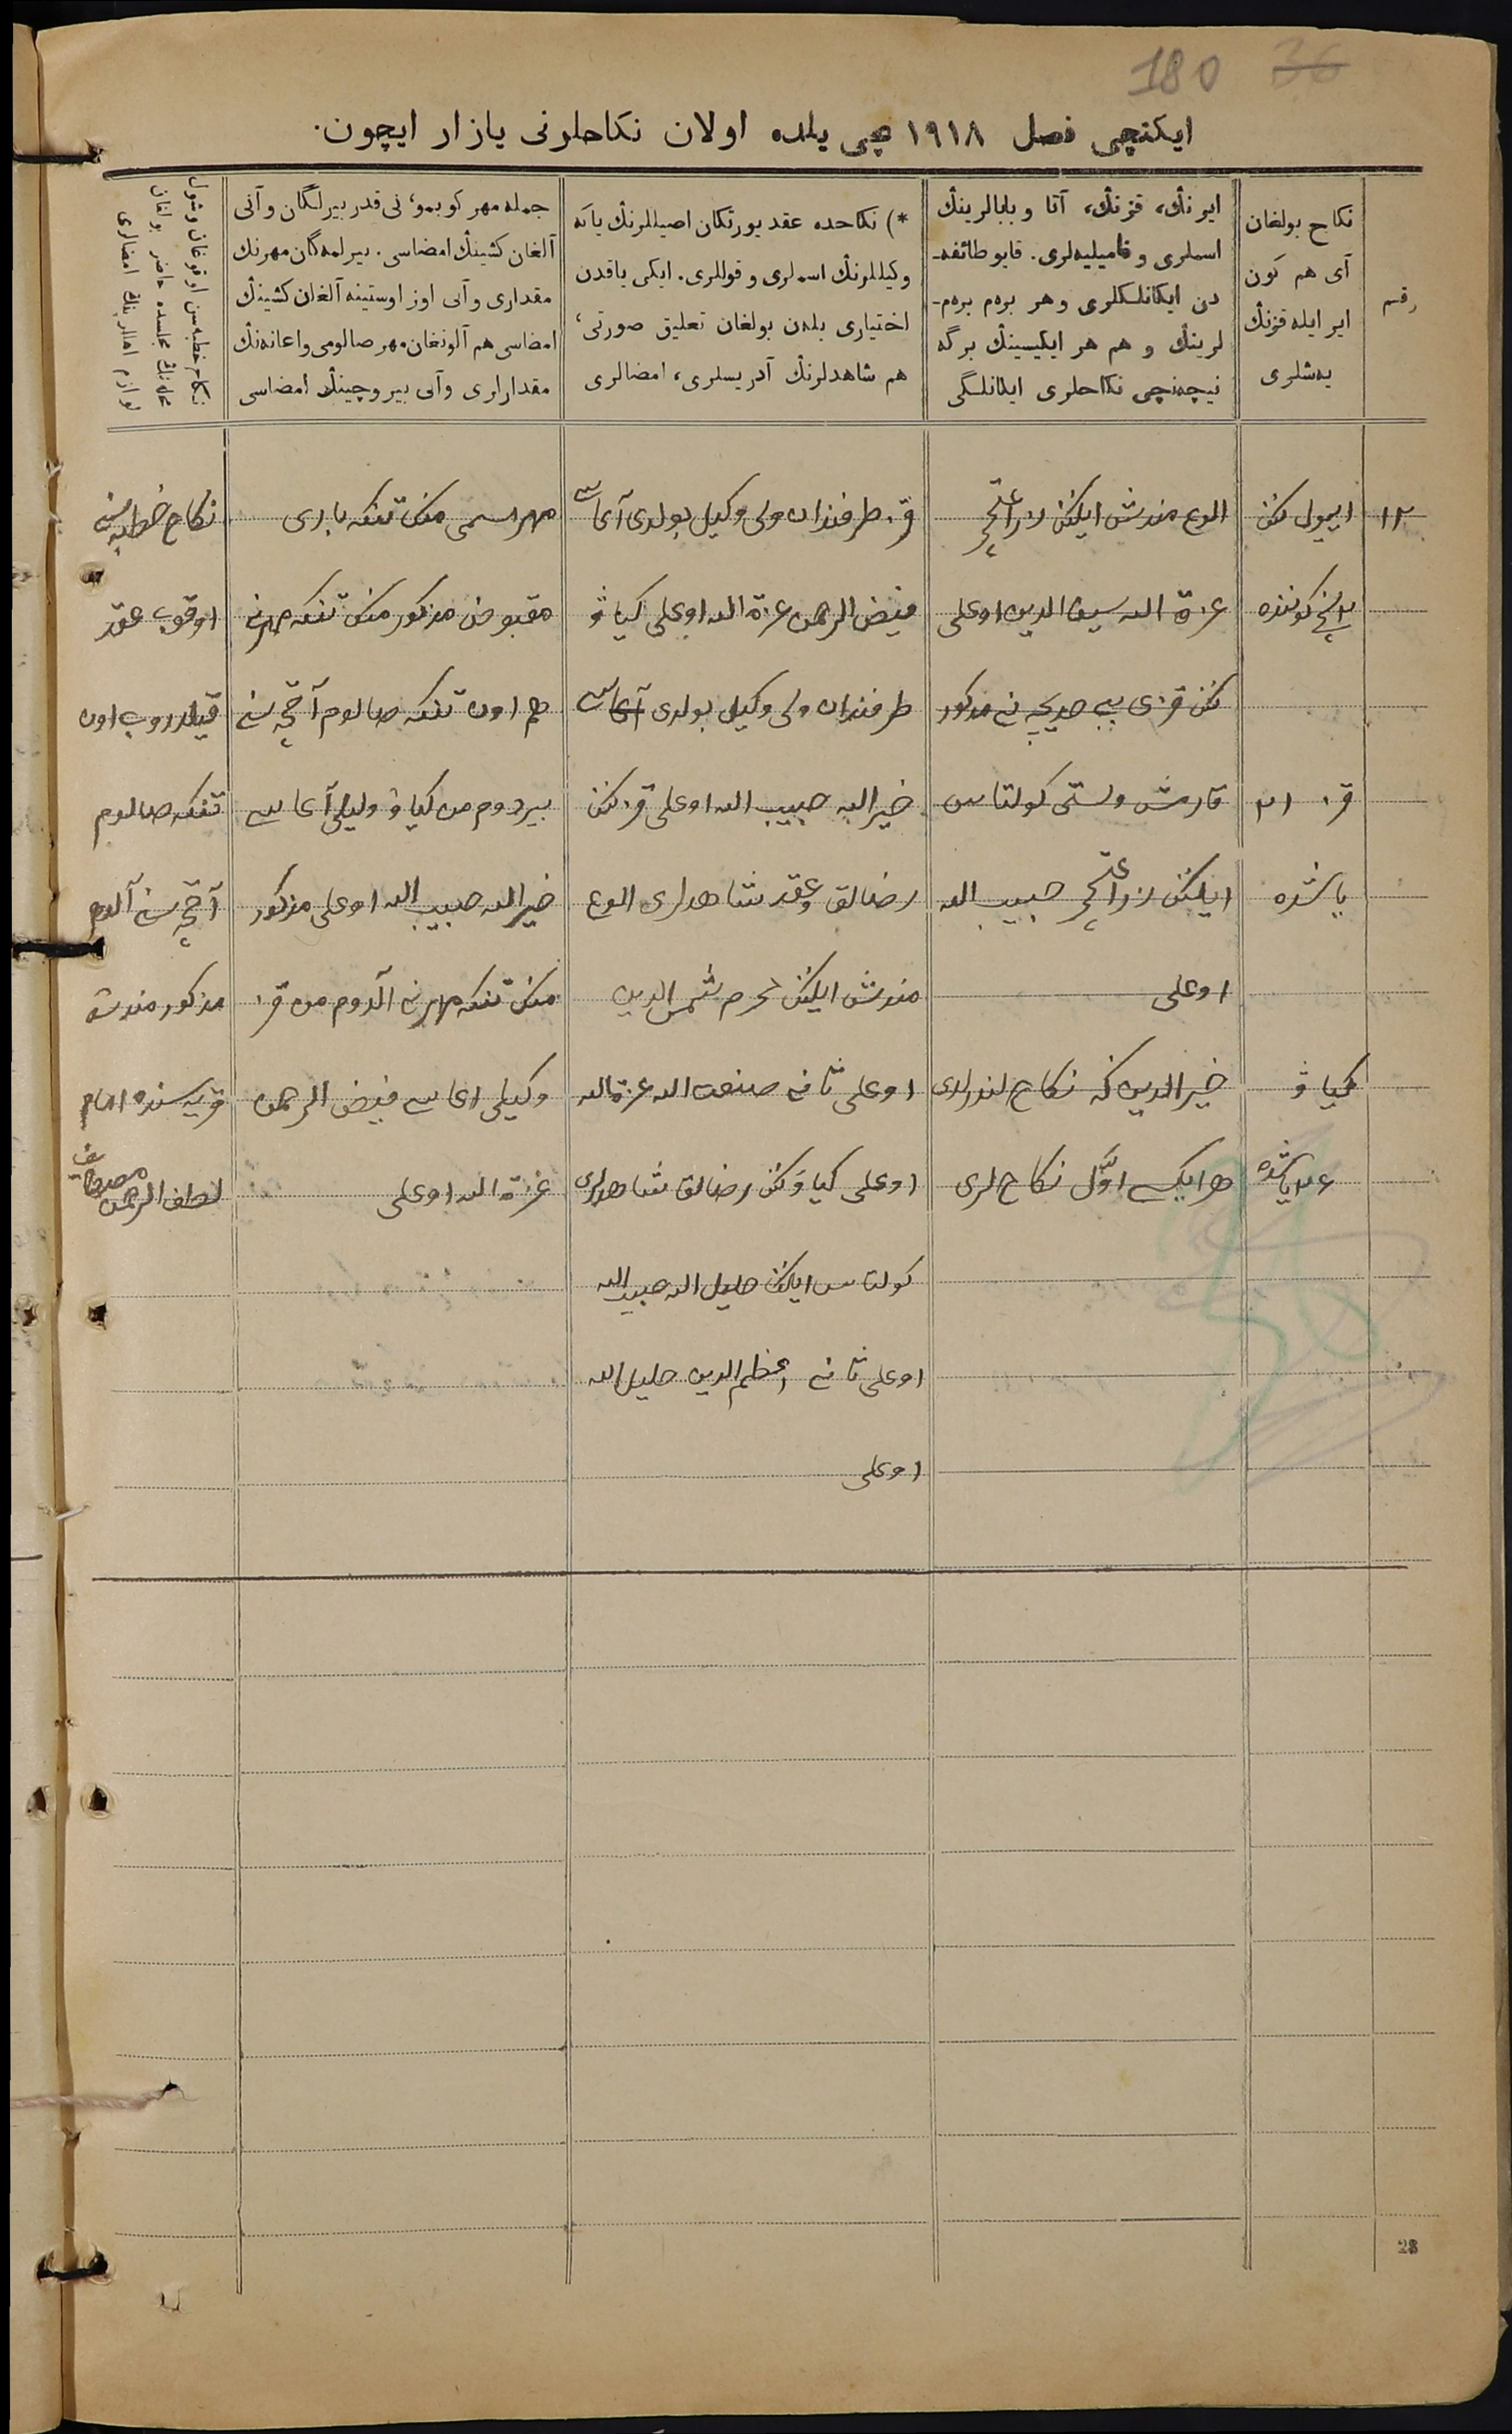 180 36
ایکنچی فصل ١٩١٨ چی یلده اولان نکاحلرنی یازار ایچون.
رقم
نکاح بولغان
آی هم کون
ایر ایله قزنڭ
یەشلری
ایرنڭ، قزنڭ، آتا و بابالرینڭ
اسملری و فامیلیەلری. قایو طائفه‌ـ
دن ایکانلکلری و هر برەم برەم‌ـ
لرینڭ و هم هر ایکیسینڭ برگه
نیچەنچی نکاحلری ایکانلگی
*) نکاحده عقد یورتکان اصیللرنڭ یاکه
وکیللرنڭ اسملری و قوللری. ایکی یاقدن
اختیاری بلەن بولغان تعلیق صورتی،
هم شاهدلرنڭ آدریسلری، امضالری
جمله مهر کوبمو، نی قدر بیرلگان و آنی
آلغان کشینڭ امضاسی. بیرلمەگان مهرنڭ
مقداری و آنی اوز اوستینه آلغان کشینڭ
امضاسی هم آلونغان مهر صالومی و اعانەنڭ
مقدارلری و آنی بیروچینڭ امضاسی
نکاح خطبەسن اوقوغان وشول
محلەنڭ مجلسده حاضر بولغان
امضالری
١٢
اییول نڭ
کوننده
قز ٢١
یاشده
کیاو
٢٤ یاشده
الوع مندش ایلینڭ
عزة الله سیف الدین اوعلی
نڭ قزی بی بی خدیجه نی مذکور
قارمش ولستی کولتاس
ایلینڭ حبیب الله
اوعلی
خیرالدین که نکاح لندرلدی
هر ایکیسی اوّل نکاح لری
قز طرفندان ولی وکیل بولدی آعاسی
فیض الرحمن عزة الله اوعلی کیاو
طرفندان ولی وکیل بولدی آعاسی
خیر الله حبیب الله اوعلی قزنڭ
رضالق و عقد شاهدلری الوع
مندش ایلینڭ محرم شمس الدین
اوعلی ثانی صنعت الله عزة الله
اوعلی کیاونڭ رضالق شاهدلری
کولتاس ایلینڭ خلیل الله حبیب الله
اوعلی ثانی اعظم الدین خلیل الله
اوعلی
مهر مسمی منڭ تنکه باری
مقبوض مذکور منڭ تنکه مهرنی
هم اون تنکه صالوم آقچه سنی
بیردوم من کیاو ولیلی آعاسی
خیر الله حبیب الله اوعلی مذکور
منڭ تنکه مهرنی آلدوم من قز
وکیلی اعاسی فیض الرحمن
عزة الله اوعلی
نکاح خطبه سنی
اوقوب عقد
قیلدروب اون
تنکه صالوم
آقچه سنی آلدم
مذکور مندش
قریه سنده امام
لطف الرحمن
28